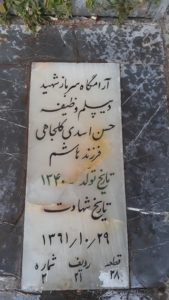 آرامگاه سرباز شهید
دیپلم وظیفه
حسن اسدی کلجاهی
فرزند هاشم
تاریخ تولد ۱۳۴۰
تاریخ شهادت
۱۳۶۱/۱۰/۲۹
قطعه ردیف شماره
۲۸ ۲۱ ۲